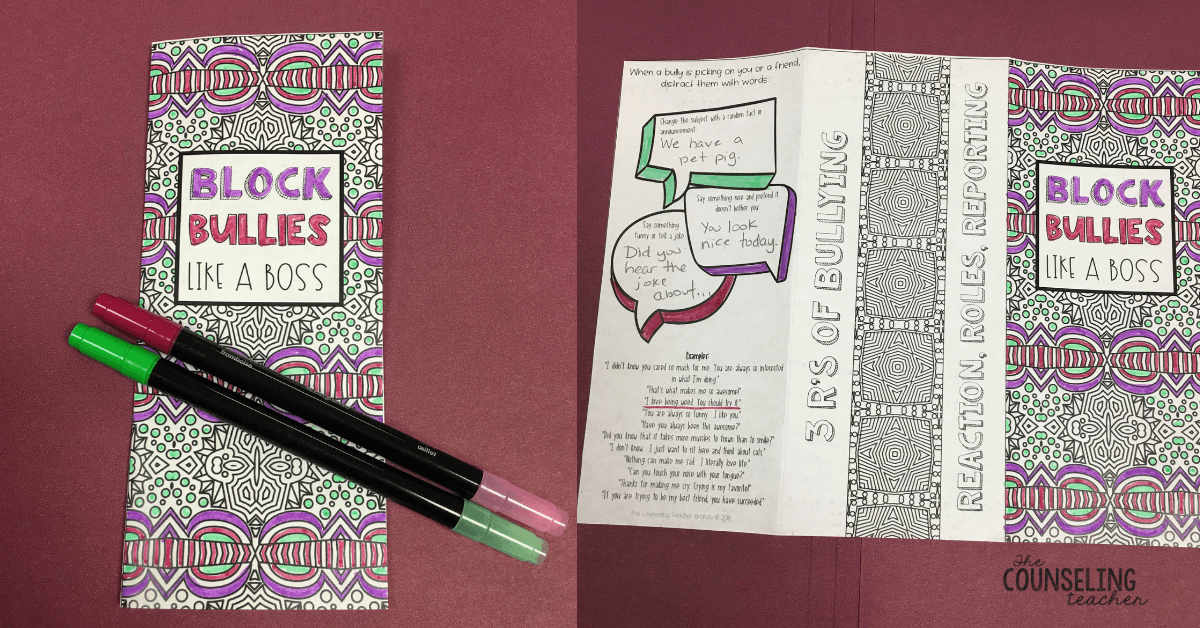 BLOCK
BULLIES
LIKE A BOSS
framboise
oeillet
When a bully is picking on you or a friend,
distract them with words:
Change the subject with a random fact or
announcement:
We have a
pet pig.
Say something nice and pretend it
doesn't bother you:
You look
nice today.
Say something
funny or tell a joke
Did you
hear the
joke
about...
Examples:
"I didn't know you cared so much for me. You are always so interested
in what I'm doing."
"That's what makes me so awesome!"
"I love being weird. You should try it."
"You are always so funny. I like you."
"Have you always been this awesome?"
"Did you know that it takes more muscles to frown than to smile?"
"I don't know. I just want to sit here and think about cats."
"Nothing can make me sad. I literally love life."
"Can you touch your nose with your tongue?"
"Thanks for making me cry. Crying is my favorite!"
"If you are trying to be my best friend, you have succeeded."
The Counseling Teacher Brandy ©
3 R'S OF BULLYING
REACTION, ROLES, REPORTING
BLOCK
BULLIES
LIKE A BOSS
the
COUNSELING
teacher